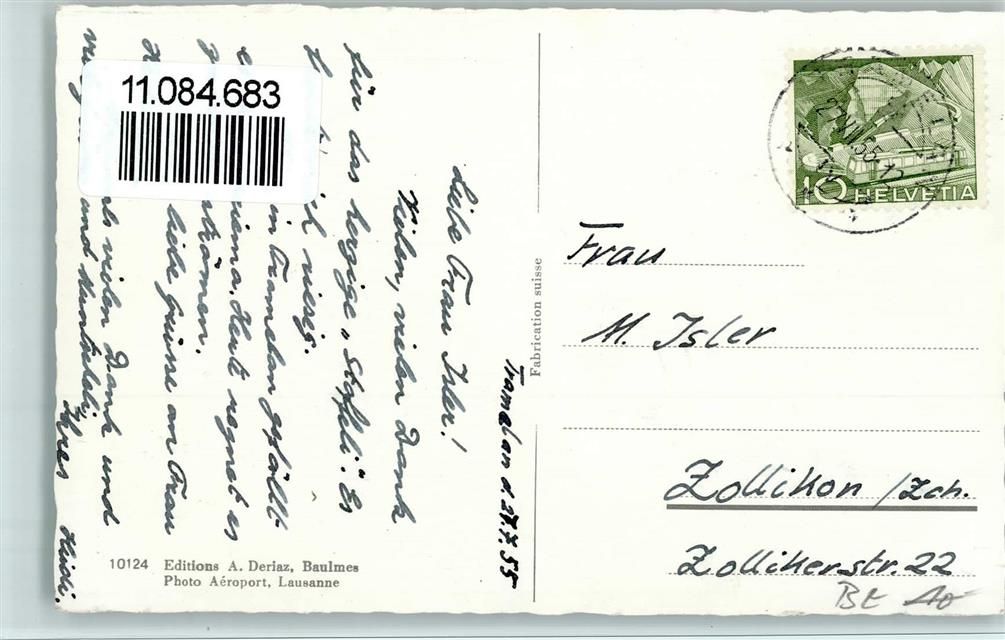 11.084.683
Tramelan d. 27.7.55
Liebe Frau Isler!
Vielen, vielen Dank
für das herzige „Stoffeli". Es
ich riesig.
in Tramelan gefällt
prima. Heute regnet es
strömen.
liebe Grüsse an Frau
vielen Dank und
und Muntsch
Ihres
Heidi.
10124 Editions A. Deriaz, Baulmes
Photo Aéroport, Lausanne
Fabrication suisse
10 HELVETIA
Frau
M. Isler
Zollikon / Zch.
Zollikerstr. 22
BE